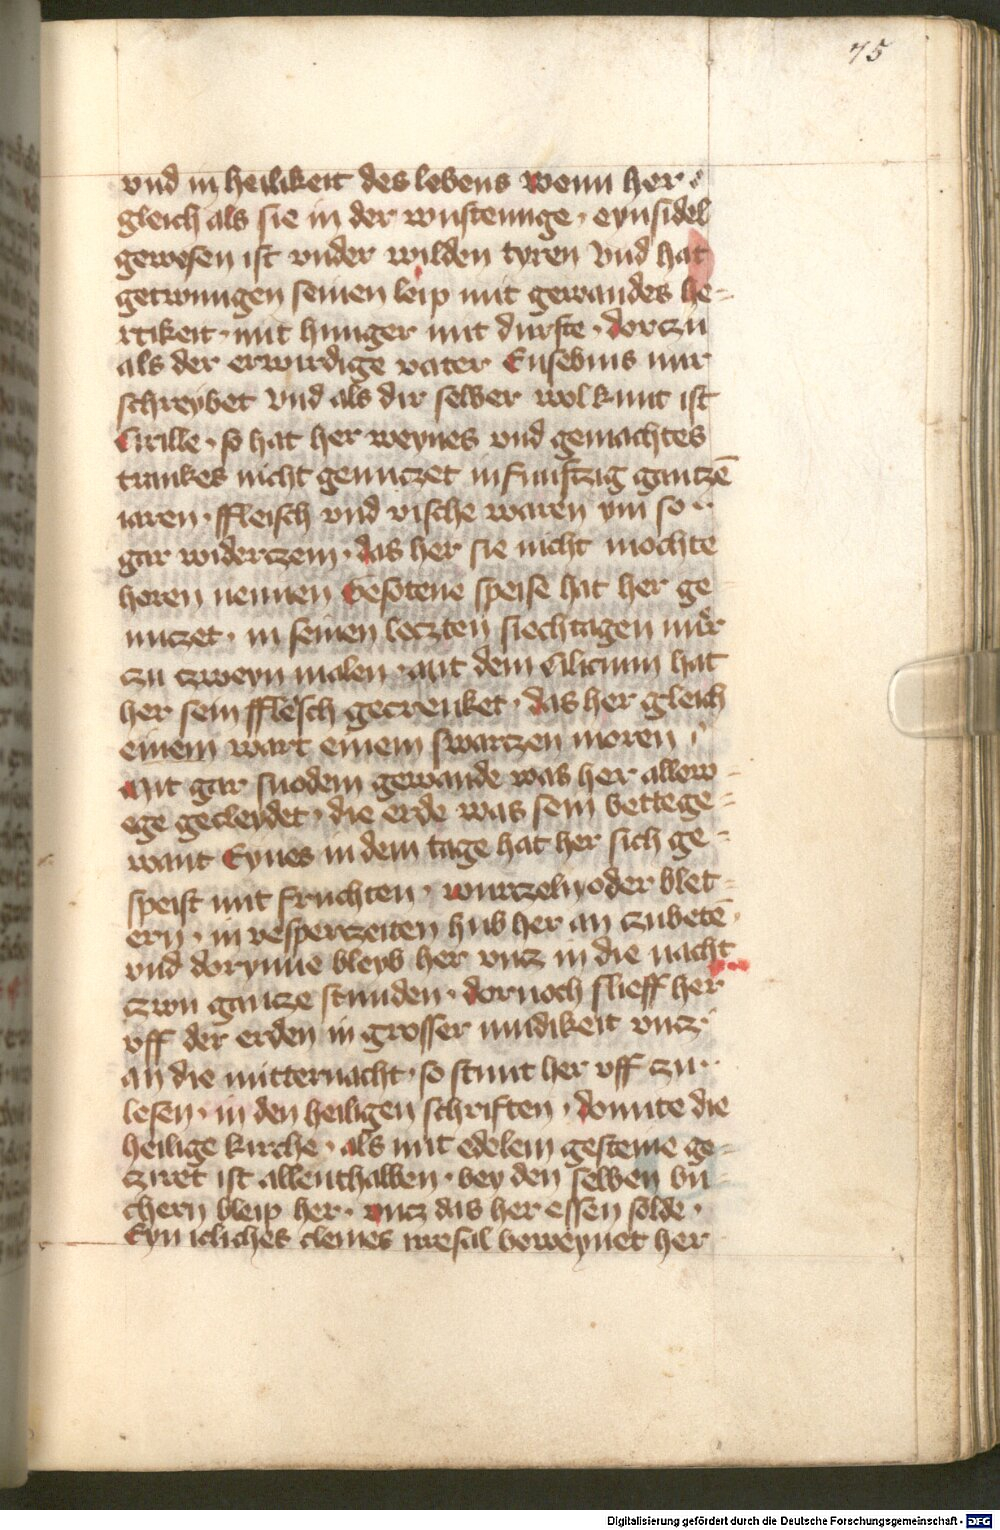 75
vnd in heilikeit des lebens wenn her
gleich als sie in der wustenunge · eynsidel
gewesen ist vnder wilden tyren Vnd hat
getwungen seinen leip mit gewandes he-
rtikeit · mit hunger mit durste · dorczu
als der erwirdige vater Eusebius mir
schreybet Vnd als dir selber wol kunt ist
Cirille · so hat her weynes vnd gemachtes
trankes nicht genuczet in funftzig gantzē
iaren · ffleisch vnd vische waren ym so ··
gar widerczem · das her sie nicht mochte
horen nennen Gesotene speise hat her ge
nuczet · in seinen leczten siechtagen nur
zu czweyn malen · Mit dem Cilicium hat
her sein fflesch gecrenket · das her gleich
einem wart einem swartzen moren
Mit gar snodem gewande was her allew-
ege gecleydet · die erde was sein bettege-
want Eynes in dem tage hat her sich ge-
speist mit fruchten · wurczeln oder blet-
ern · in vesperczeiten hub her an zubetē ·
vnd dorynne bleyb her vncz in die nacht
czwu gancze stunden · dornoch slieff her
vff der erden in grosser mudikeit vncz
an die mitternacht · so stunt her vff zu ··
lesen · in den heiligen schriften · domite die
heilige kirche · als mit edelem gesteine ge-
ziret ist allenthalben · bey den selben bu-
chern bleip her · vncz das her essen solde ·
Eyn icliches cleines irresal beweynet her
Digitalisierung gefördert durch die Deutsche Forschungsgemeinschaft - DFG